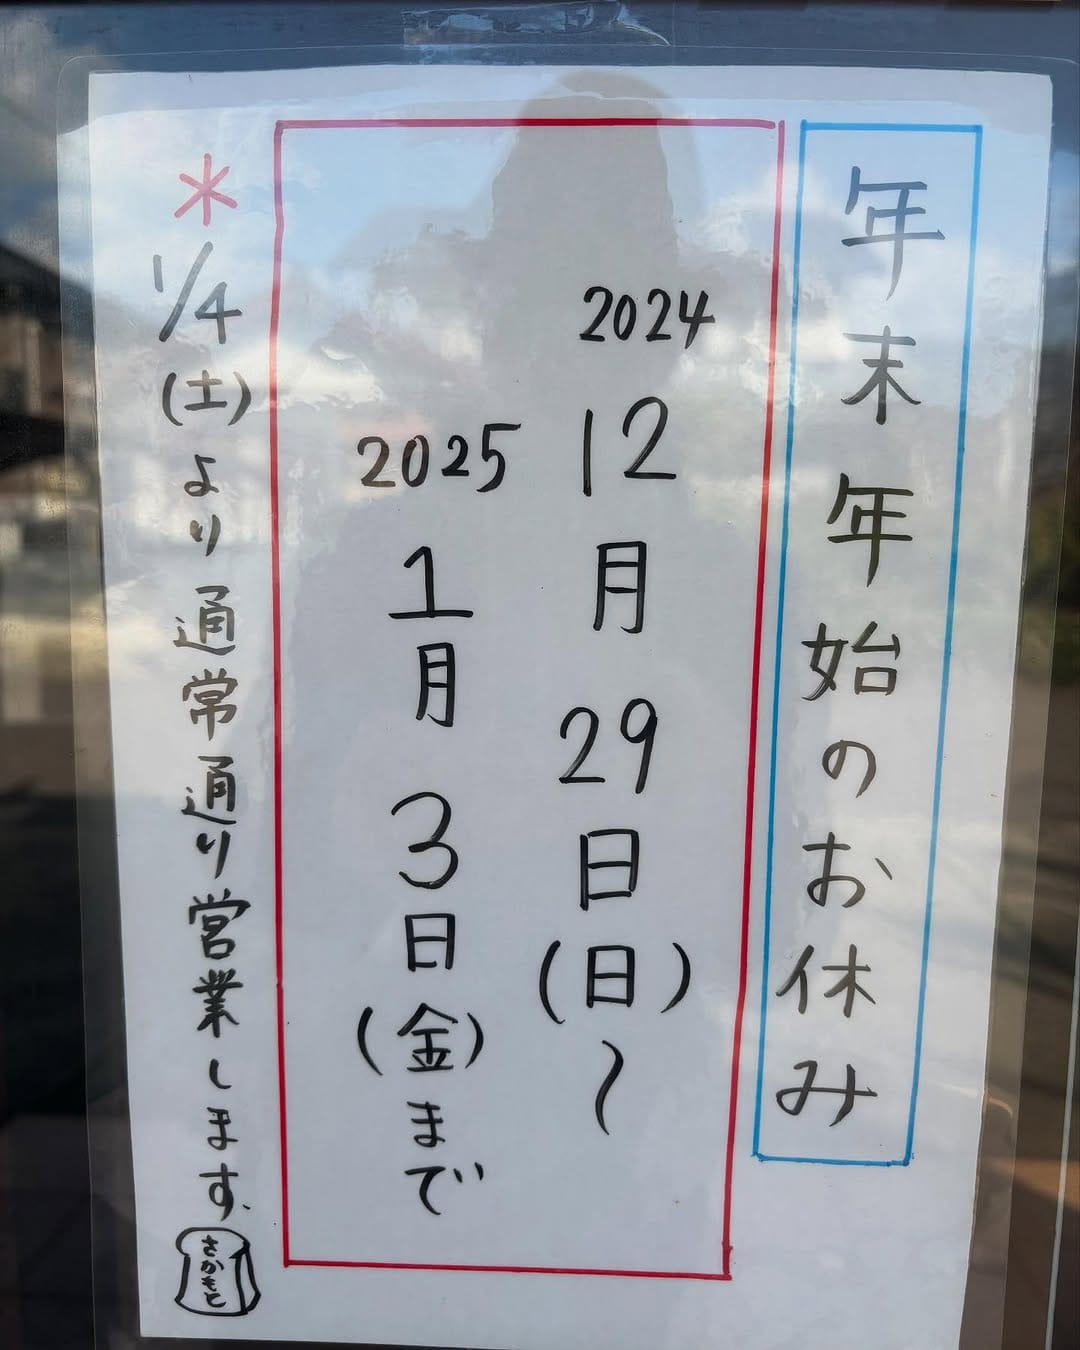 年末年始のお休み
2024
12月29日(日)〜
2025
1月3日(金)まで
*1/4(土)より通常通り営業します。
さかもと